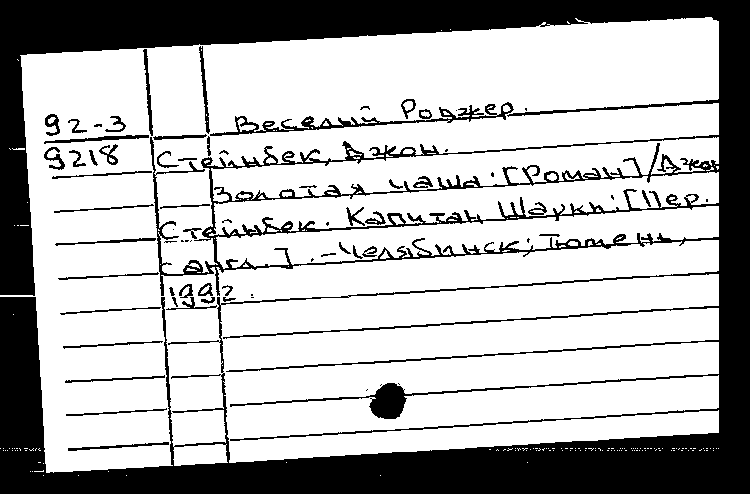 92-3 Веселый Роджер.
9218 Стейнбек, Джон.
Золотая чаша: [Роман] / Джон
Стейнбек. Капитан Шарки: [Пер.
с англ.]. - Челябинск; Тюмень,
1992.